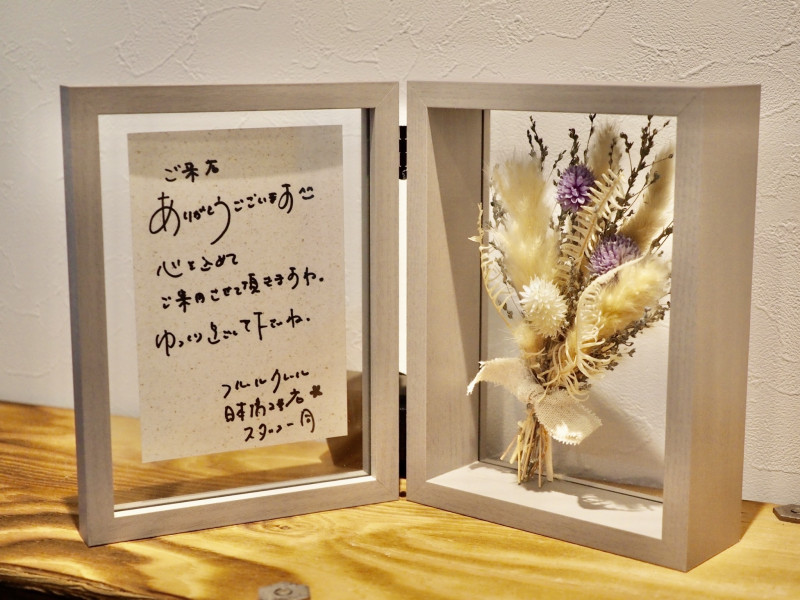 ご来店
ありがとうございます^^
心を込めて
ご案内させて頂きますね。
ゆっくり過ごして下さいね。
フルールクレール
日本橋本店
スタッフ一同